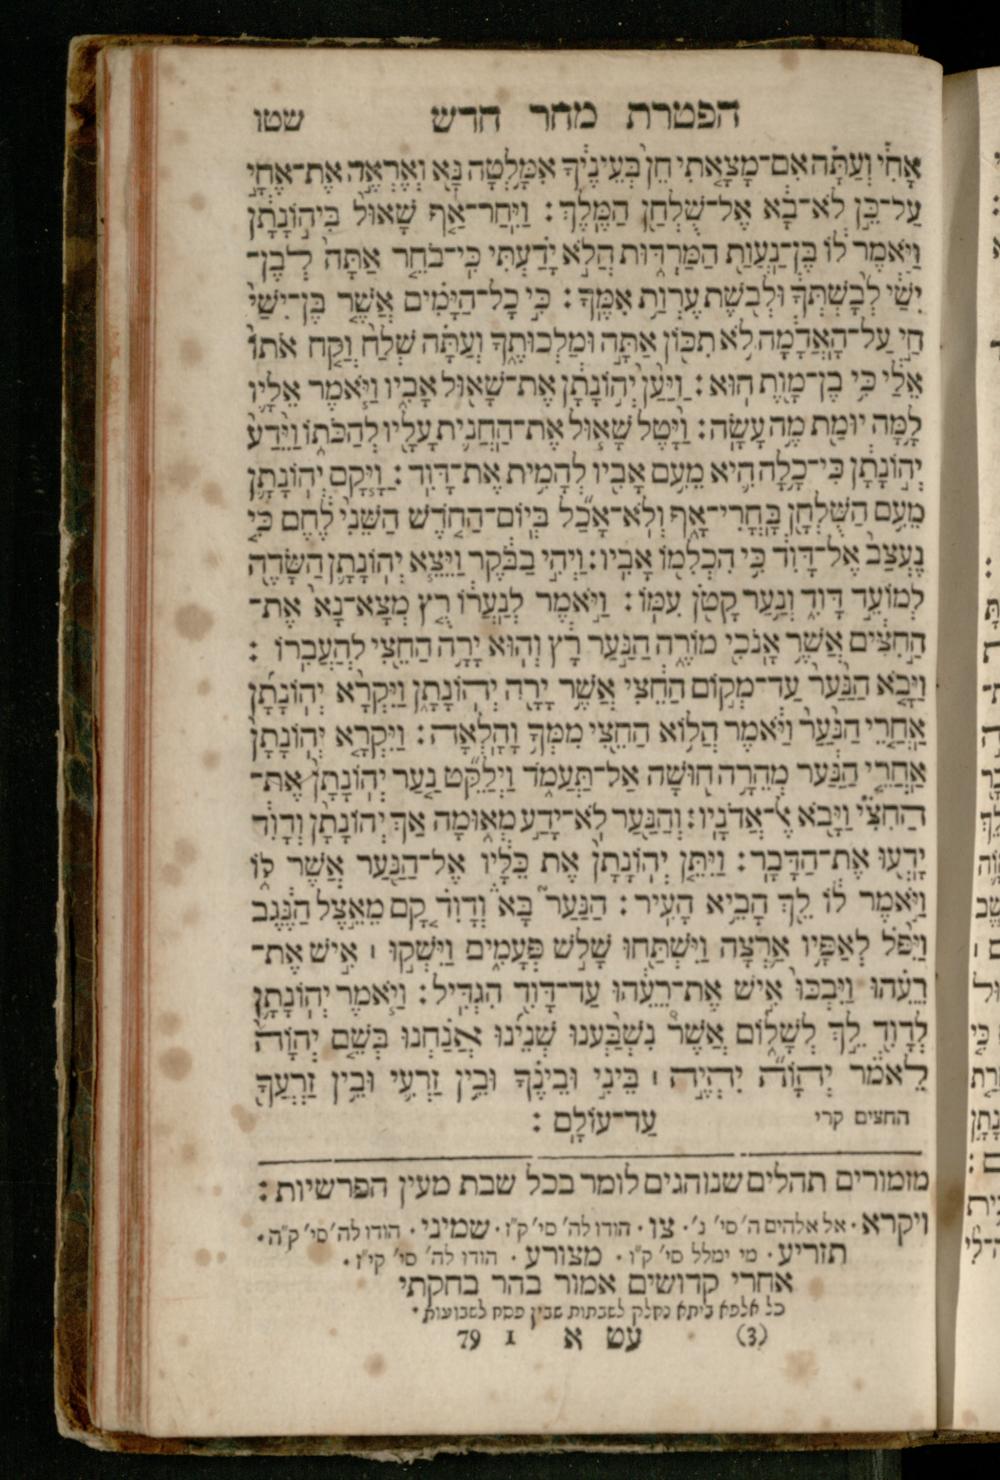 הפטרת מחר חדש שטו
אָחִי וְעַתָּה אִם־מָצָאתִי חֵן בְּעֵינֶיךָ אִמָּלְטָה נָּא וְאֶרְאֶה אֶת־אֶחָי
עַל־כֵּן לֹא־בָא אֶל־שֻׁלְחַן הַמֶּלֶךְ׃ וַיִּחַר־אַף שָׁאוּל בִּיהוֹנָתָן
וַיֹּאמֶר לוֹ בֶּן־נַעֲוַת הַמַּרְדּוּת הֲלֹא יָדַעְתִּי כִּי־בֹחֵר אַתָּה לְבֶן־
יִשַׁי לְבָשְׁתְּךָ וּלְבֹשֶׁת עֶרְוַת אִמֶּךָ׃ כִּי כָל־הַיָּמִים אֲשֶׁר בֶּן־יִשַׁי
חַי עַל־הָאֲדָמָה לֹא תִכּוֹן אַתָּה וּמַלְכוּתֶךָ וְעַתָּה שְׁלַח וְקַח אֹתוֹ
אֵלַי כִּי בֶן־מָוֶת הוּא׃ וַיַּעַן יְהוֹנָתָן אֶת־שָׁאוּל אָבִיו וַיֹּאמֶר אֵלָיו
לָמָּה יוּמַת מֶה עָשָׂה׃ וַיָּטֶל שָׁאוּל אֶת־הַחֲנִית עָלָיו לְהַכֹּתוֹ וַיֵּדַע
יְהוֹנָתָן כִּי־כָלָה הִיא מֵעִם אָבִיו לְהָמִית אֶת־דָּוִד׃ וַיָּקָם יְהוֹנָתָן
מֵעִם הַשֻּׁלְחָן בָּחֳרִי־אָף וְלֹא־אָכַל בְּיוֹם־הַחֹדֶשׁ הַשֵּׁנִי לֶחֶם כִּי
נֶעְצַב אֶל־דָּוִד כִּי הִכְלִמוֹ אָבִיו׃ וַיְהִי בַבֹּקֶר וַיֵּצֵא יְהוֹנָתָן הַשָּׂדֶה
לְמוֹעֵד דָּוִד וְנַעַר קָטֹן עִמּוֹ׃ וַיֹּאמֶר לְנַעֲרוֹ רֻץ מְצָא־נָא אֶת־
הַחִצִּים אֲשֶׁר אָנֹכִי מוֹרֶה הַנַּעַר רָץ וְהוּא יָרָה הַחֵצִי לְהַעֲבִרוֹ׃
וַיָּבֹא הַנַּעַר עַד־מְקוֹם הַחֵצִי אֲשֶׁר יָרָה יְהוֹנָתָן וַיִּקְרָא יְהוֹנָתָן
אַחֲרֵי הַנַּעַר וַיֹּאמֶר הֲלוֹא הַחֵצִי מִמְּךָ וָהָלְאָה׃ וַיִּקְרָא יְהוֹנָתָן
אַחֲרֵי הַנַּעַר מְהֵרָה חוּשָׁה אַל־תַּעֲמֹד וַיְלַקֵּט נַעַר יְהוֹנָתָן אֶת־
הַחִצִּי וַיָּבֹא אֶל־אֲדֹנָיו׃ וְהַנַּעַר לֹא־יָדַע מְאוּמָה אַךְ יְהוֹנָתָן וְדָוִד
יָדְעוּ אֶת־הַדָּבָר׃ וַיִּתֵּן יְהוֹנָתָן אֶת כֵּלָיו אֶל־הַנַּעַר אֲשֶׁר לוֹ
וַיֹּאמֶר לוֹ לֵךְ הָבֵיא הָעִיר׃ הַנַּעַר בָּא וְדָוִד קָם מֵאֵצֶל הַנֶּגֶב
וַיִּפֹּל לְאַפָּיו אַרְצָה וַיִּשְׁתַּחוּ שָׁלֹשׁ פְּעָמִים וַיִּשְּׁקוּ ׀ אִישׁ אֶת־
רֵעֵהוּ וַיִּבְכּוּ אִישׁ אֶת־רֵעֵהוּ עַד־דָּוִד הִגְדִּיל׃ וַיֹּאמֶר יְהוֹנָתָן
לְדָוִד לֵךְ לְשָׁלוֹם אֲשֶׁר נִשְׁבַּעְנוּ שְׁנֵינוּ אֲנַחְנוּ בְּשֵׁם יְהוָה
לֵאמֹר יְהוָה יִהְיֶה ׀ בֵּינִי וּבֵינֶךָ וּבֵין זַרְעִי וּבֵין זַרְעֲךָ
החצים קרי עַד־עוֹלָם׃
מזמורים תהלים שנוהגים לומר בכל שבת מעין הפרשיות׃
ויקרא· אל אלהים ה' סי' נ'· צו· הודו לה' סי' ק"ז· שמיני· הודו לה' סי' ק"ה·
תזריע· מי ימלל סי' ק"ו· מצורע· הודו לה' סי' קי"ז·
אחרי קדושים אמור בהר בחקתי
כל אלפא ביתא נחלק לשבתות שבין פסח לשבועות·
(3) עט א 1 79